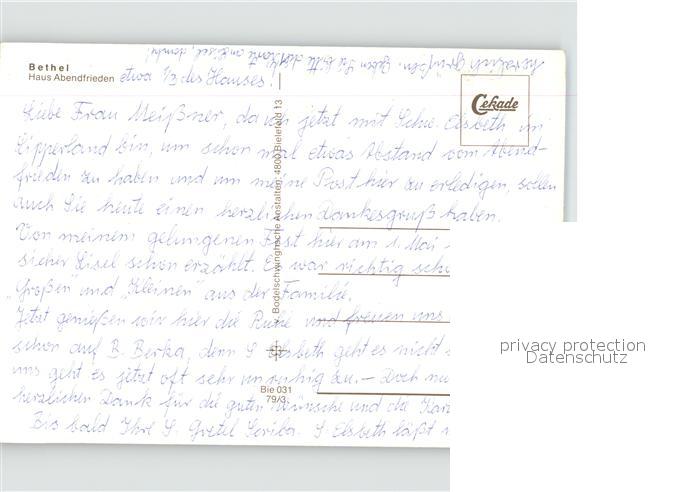 herzlich grüßen. Geben Sie bitte die Karte an Gisel, danke!
Bethel
Haus Abendfrieden etwa 1/3 des Hauses.
Cekade
Liebe Frau Meißner, da ich jetzt mit Schw. Elsbeth im
Lipperland bin, um schon mal etwas Abstand vom Abend-
frieden zu haben und um meine Post hier zu erledigen, sollen
auch Sie heute einen herzlichen Dankesgruß haben.
Von meinem gelungenen Fest hier am 1. Mai
sicher Gisel schon erzählt. Es war richtig
"Großen" und "Kleinen" aus der Familie.
Jetzt genießen wir hier die Ruhe und freuen uns
schon auf B. Berka, denn S. Elsbeth geht es nicht
uns geht es jetzt oft sehr unruhig zu. – Doch
herzlichen Dank für die guten Wünsche und die
Bis bald Ihre S. Gretel Scriba. S. Elsbeth läßt
Bodelschwinghsche Anstalten, 4800 Bielefeld 13
Bie 031
79/3
privacy protection
Datenschutz